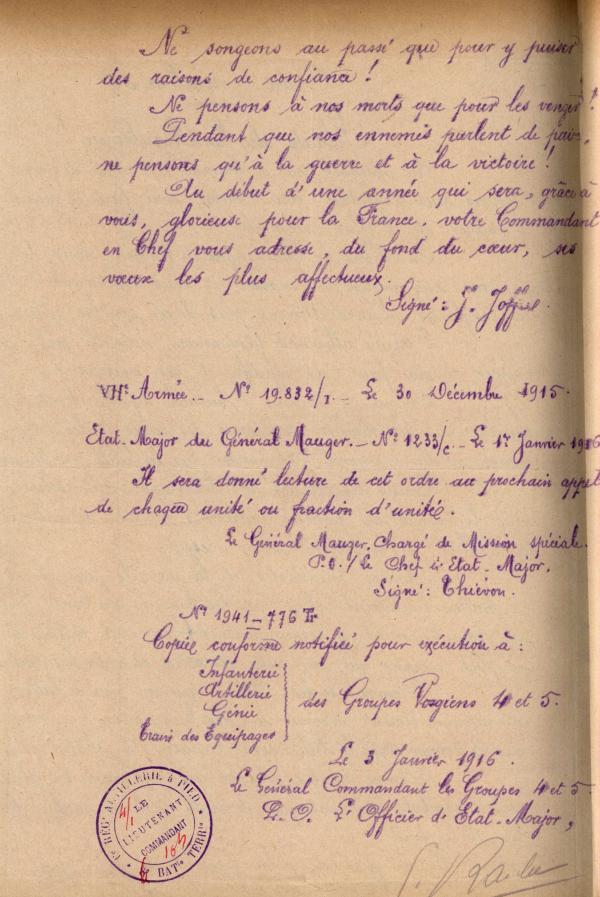 Ne songeons au passé que pour y puiser
des raisons de confiance !
Ne pensons à nos morts que pour les venger !
Pendant que nos ennemis parlent de paix,
ne pensons qu'à la guerre et à la victoire !
Au début d'une année qui sera, grâce à
vous, glorieuse pour la France, votre Commandant
en Chef vous adresse, du fond du cœur, ses
vœux les plus affectueux.
Signé : J. Joffre.
VIIe Armée._ No 19.832/1._ Le 30 Décembre 1915.
Etat-Major du Général Mauger._ No 1233/c._ Le 1er Janvier 1916
Il sera donné lecture de cet ordre au prochain appel
de chaque unité ou fraction d'unité.
Le Général Mauger, Chargé de Mission spéciale.
P.O./ Le Chef d'Etat-Major,
Signé : Thiévon.
No 1941_776 Tr
Copie conforme notifiée pour exécution à :
Infanterie
Artillerie
Génie
Trains des Equipages
des Groupes Vosgiens 4 et 5.
Le 3 Janvier 1916.
Le Général Commandant les Groupes 4 et 5
P.O. L'Officier d'Etat-Major,
RÉGt ARTILLERIE À PIED
LE
LIEUTENANT
COMMANDANT
BATie TERRle